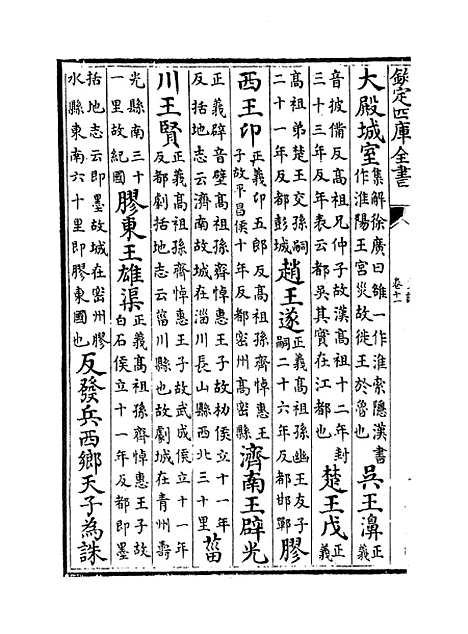 欽定四庫全書
卷十一
大殿城室集解徐廣曰雒一作淮索隱漢書作淮陽王宮災故徙王於魯也吳王濞正義
音披備反高祖兄仲子故漢高祖十二年封三十三年反年表云都吳其實在江都也楚王戊正義
高祖弟楚王交孫嗣二十一年反都彭城趙王遂正義高祖孫幽王友子嗣二十六年反都邯鄲膠
西王卬正義卬五郎反高祖孫齊悼惠王子故平昌侯十年反都密州高密縣濟南王辟光
正義辟音壁高祖孫齊悼惠王子故扐侯立十一年反括地志云濟南故城在淄川長山縣西北三十里菑
川王賢正義高祖孫齊悼惠王子故武成侯立十一年反都劇括地志云菑川縣也故劇城在青州壽
光縣南三十一里故紀國膠東王雄渠正義高祖孫齊悼惠王子故白石侯立十一年反都即墨
括地志云即墨故城在密州膠水縣東南六十里即膠東國也反發兵西鄉天子為誅